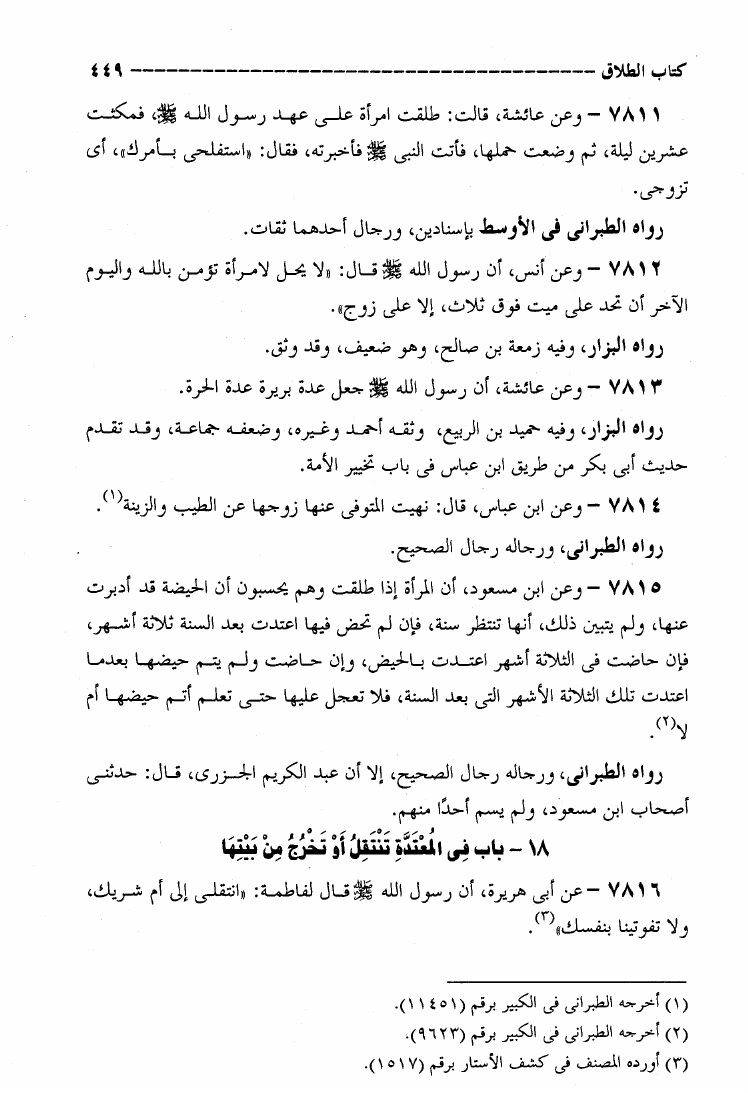 كتاب الطلاق ــــــــــــــــــــــــــــــــــــــــ ٤٤٩
٧٨١١ – وعن عائشة، قالت: طلقت امرأة على عهد رسول الله ﷺ، فمكثت
عشرين ليلة، ثم وضعت حملها، فأتت النبى ﷺ فأخبرته، فقال: «استفلحى بأمرك»، أى
تزوجى.
رواه الطبرانى فى الأوسط بإسنادين، ورجال أحدهما ثقات.
٧٨١٢ – وعن أنس، أن رسول الله ﷺ قال: «لا يحل لامرأة تؤمن بالله واليوم
الآخر أن تحد على ميت فوق ثلاث، إلا على زوج».
رواه البزار، وفيه زمعة بن صالح، وهو ضعيف، وقد وثق.
٧٨١٣ – وعن عائشة، أن رسول الله ﷺ جعل عدة بريرة عدة الحرة.
رواه البزار، وفيه حميد بن الربيع، وثقه أحمد وغيره، وضعفه جماعة، وقد تقدم
حديث أبى بكر من طريق ابن عباس فى باب تخيير الأمة.
٧٨١٤ – وعن ابن عباس، قال: نهيت المتوفى عنها زوجها عن الطيب والزينة(١).
رواه الطبرانى، ورجاله رجال الصحيح.
٧٨١٥ – وعن ابن مسعود، أن المرأة إذا طلقت وهم يحسبون أن الحيضة قد أدبرت
عنها، ولم يتبين ذلك، أنها تنتظر سنة، فإن لم تحض فيها اعتدت بعد السنة ثلاثة أشهر،
فإن حاضت فى الثلاثة أشهر اعتدت بالحيض، وإن حاضت ولم يتم حيضها بعدما
اعتدت تلك الثلاثة الأشهر التى بعد السنة، فلا تعجل عليها حتى تعلم أتم حيضها أم
لا(٢).
رواه الطبرانى، ورجاله رجال الصحيح، إلا أن عبد الكريم الجزرى، قال: حدثنى
أصحاب ابن مسعود، ولم يسم أحدًا منهم.
١٨ – باب فِى الْمُعْتَدَّةِ تَنْتَقِلُ أَوْ تَخْرُجُ مِنْ بَيْتِهَا
٧٨١٦ – عن أبى هريرة، أن رسول الله ﷺ قال لفاطمة: «انتقلى إلى أم شريك،
ولا تفوتينا بنفسك»(٣).
(١) أخرجه الطبرانى فى الكبير برقم (١١٤٥١).
(٢) أخرجه الطبرانى فى الكبير برقم (٩٦٢٣).
(٣) أورده المصنف فى كشف الأستار برقم (١٥١٧).